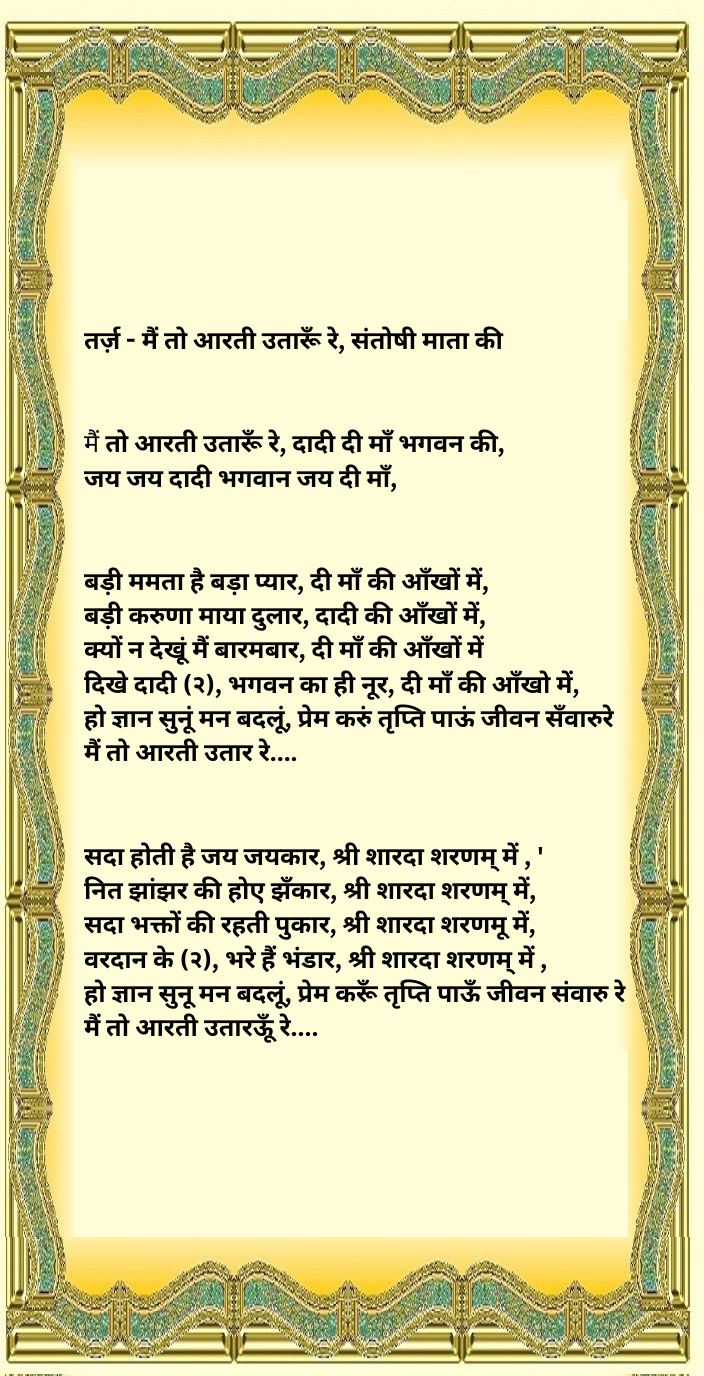 तर्ज़ - मैं तो आरती उतारूँ रे, संतोषी माता की
मैं तो आरती उतारूँ रे, दादी दी माँ भगवन की,
जय जय दादी भगवान जय दी माँ,
बड़ी ममता है बड़ा प्यार, दी माँ की आँखों में,
बड़ी करुणा माया दुलार, दादी की आँखों में,
क्यों न देखूं मैं बारमबार, दी माँ की आँखों में
दिखे दादी (२), भगवन का ही नूर, दी माँ की आँखो में,
हो ज्ञान सुनूं मन बदलूं, प्रेम करुं तृप्ति पाऊं जीवन सँवारुरे
मैं तो आरती उतार रे....
सदा होती है जय जयकार, श्री शारदा शरणम् में , '
नित झांझर की होए झँकार, श्री शारदा शरणम् में,
सदा भक्तों की रहती पुकार, श्री शारदा शरणमू में,
वरदान के (२), भरे हैं भंडार, श्री शारदा शरणम् में ,
हो ज्ञान सुनू मन बदलूं, प्रेम करूँ तृप्ति पाऊँ जीवन संवारु रे
मैं तो आरती उतारऊँ रे....